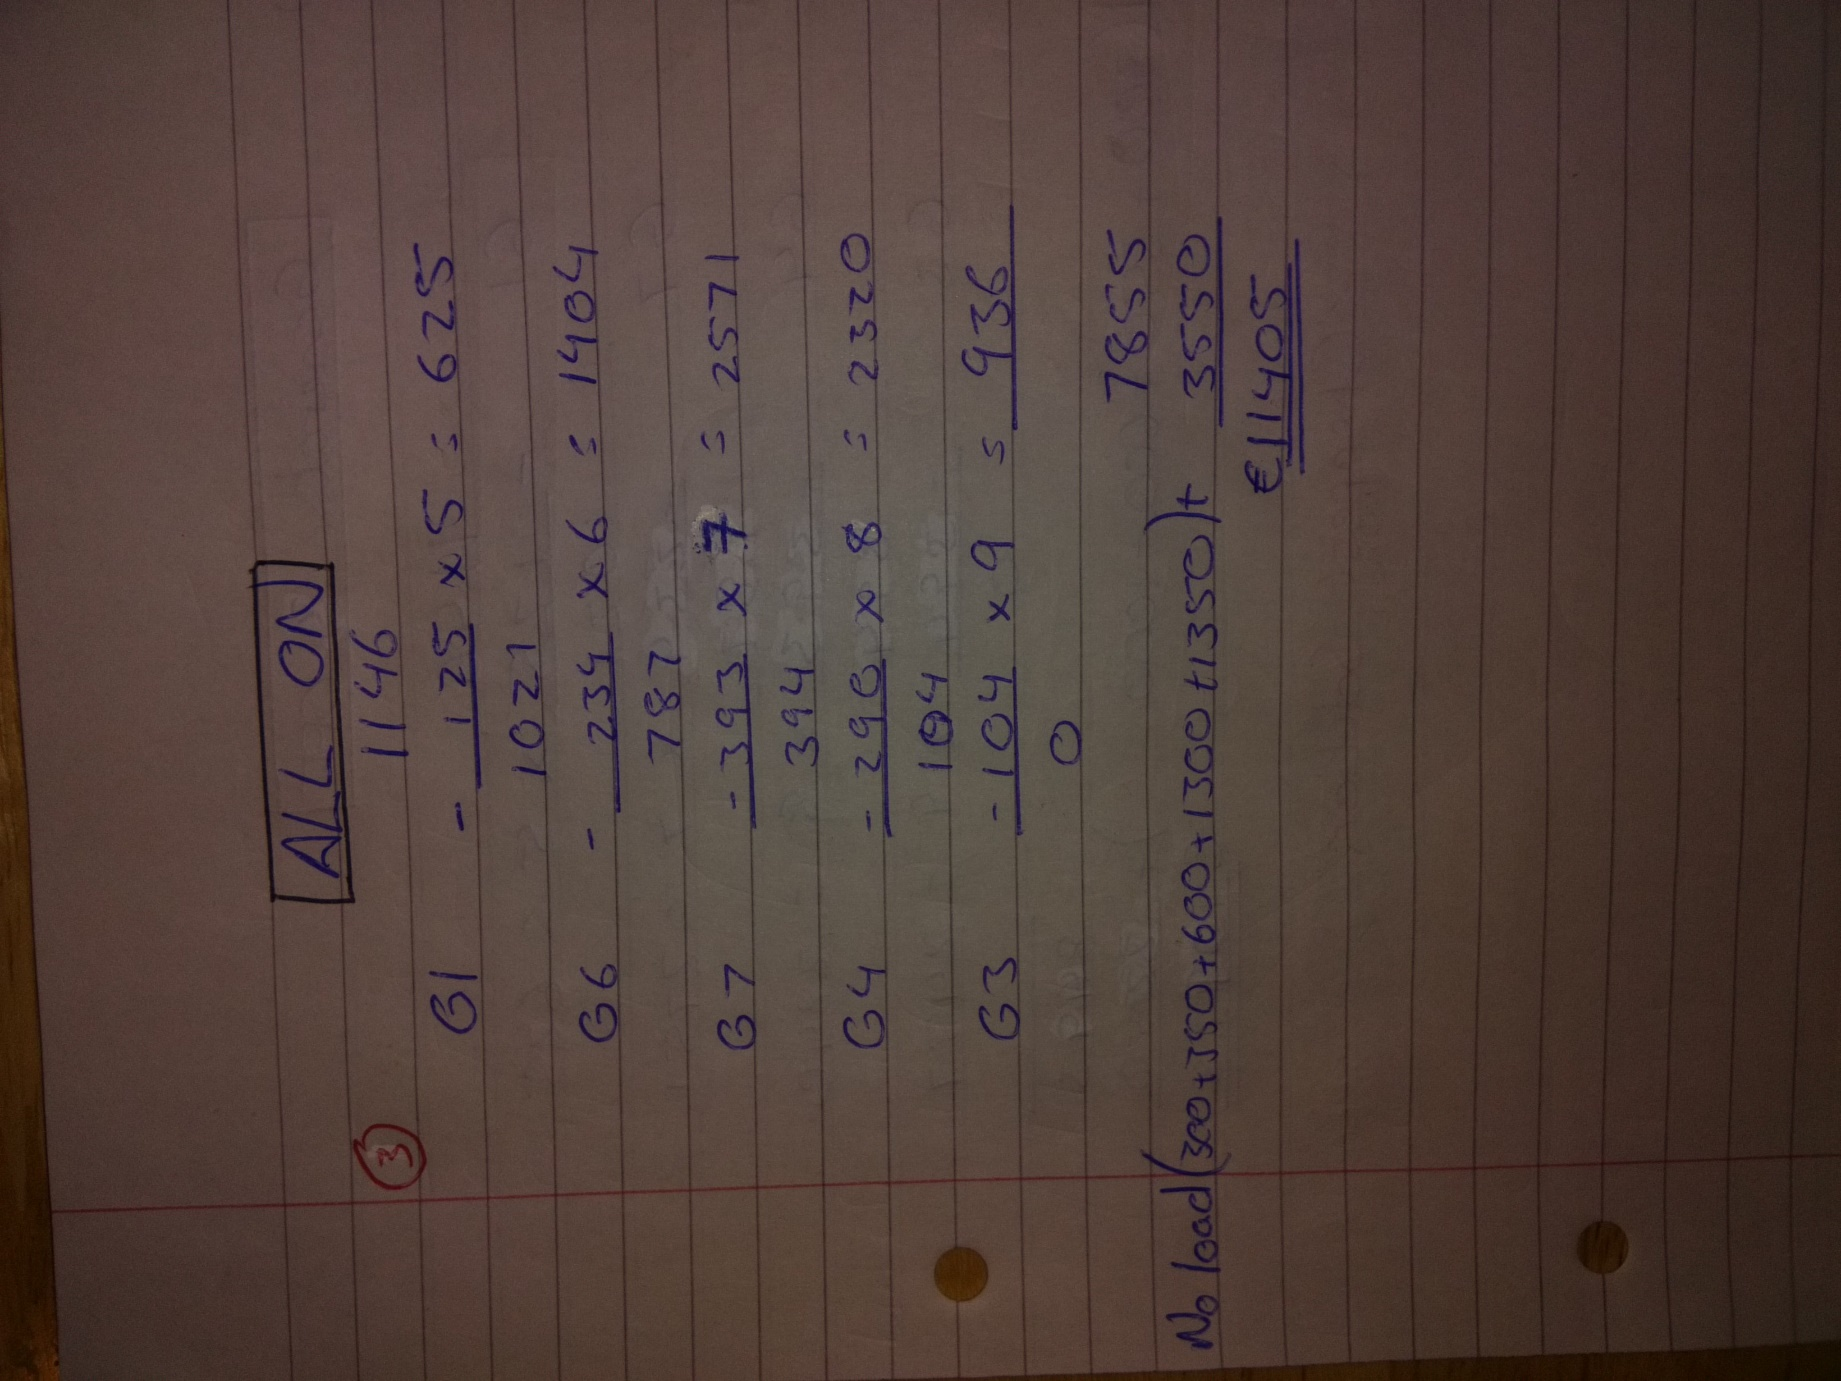 ALL ON
③ 1146
G1 - 125 x 5 = 625
1021
G6 - 234 x 6 = 1404
787
G7 - 393 x 7 = 2571
394
G4 - 290 x 8 = 2320
104
G3 - 104 x 9 = 936
0
7855
No load (300+350+600+1300+1350)+ 3550
€11405